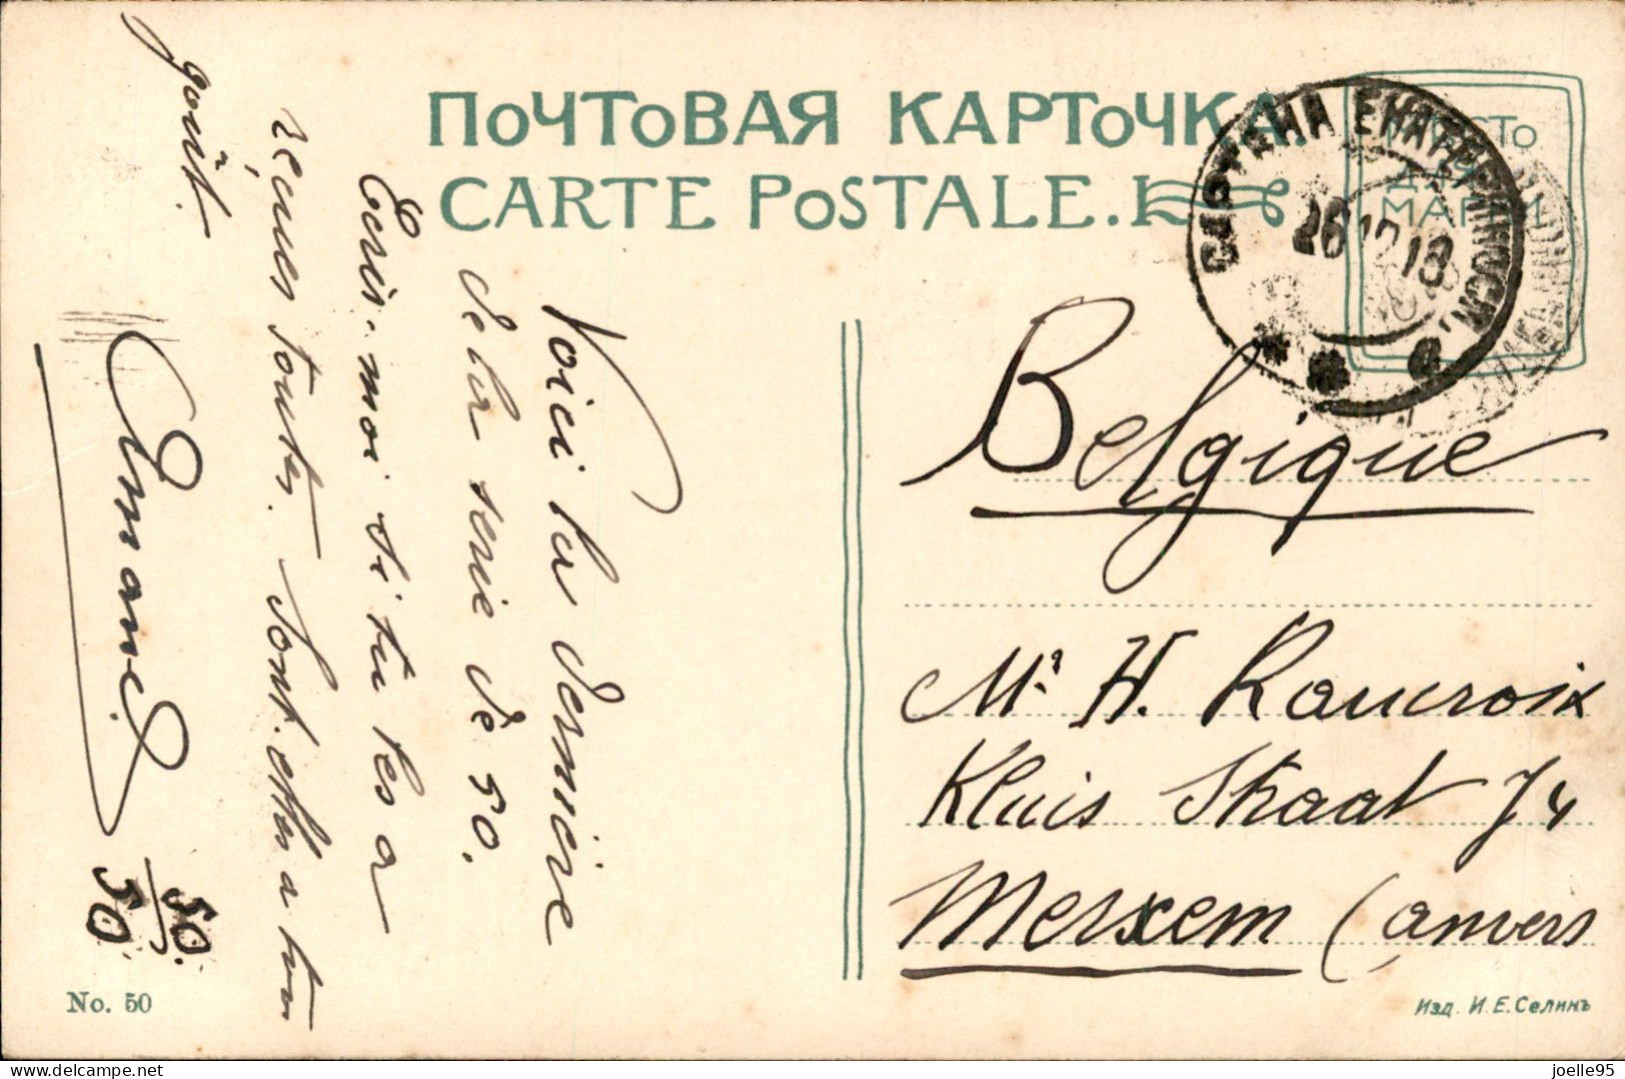 ПОЧТОВАЯ КАРТОЧКА.
CARTE POSTALE.
МѢСТО
ДЛЯ
МАРКИ
САРТАНА ЕКАТЕРИНОСЛ.
26 12 13
Voici la dernière
de la serie de 50.
Ecris-moi si tu les a
reçues toutes. Sont-elles a ton
goût.
50
50
Belgique
Mr. H. Roucroix
Kluis Straat 74
Merxem (anvers
No. 50
Изд. И.Е.Селинъ
delcampe.net
joelle95